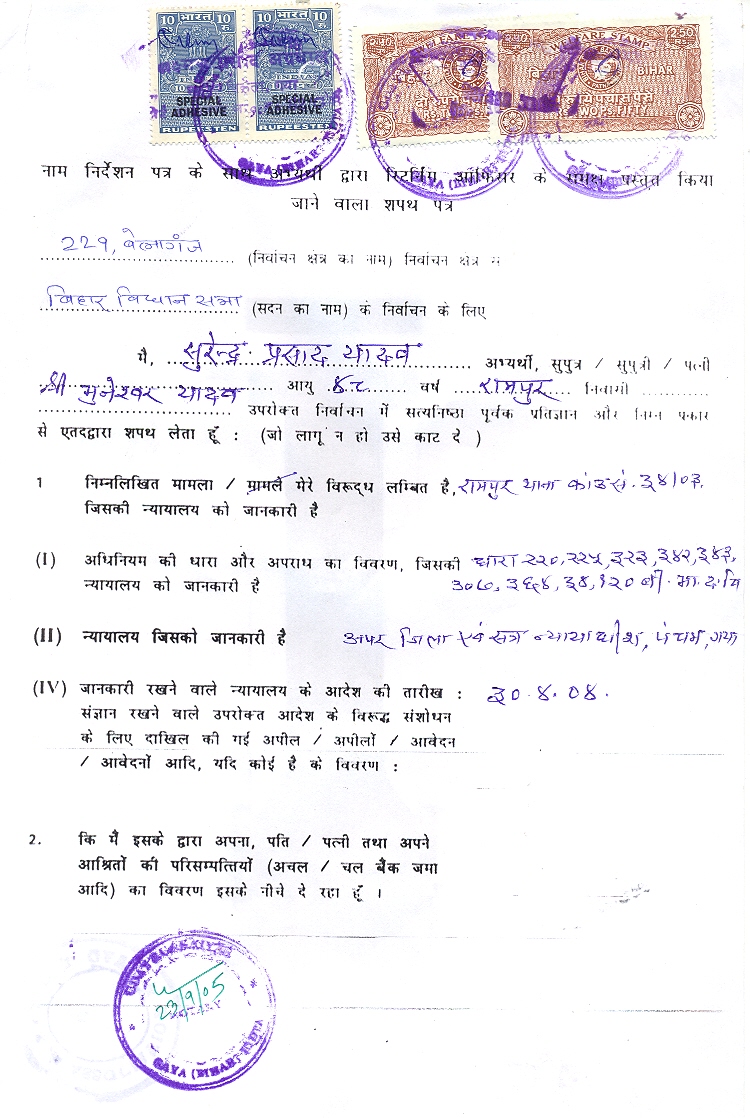 10 भारत 10 10 भारत 10
WELFARE STAMP WELFARE STAMP 2.50
BIHAR
INDIA
SPECIAL SPECIAL
ADHESIVE ADHESIVE
RUPEES TEN RUPEES TEN
GAYA (BIHAR)
नाम निर्देशन पत्र के साथ अभ्यर्थी द्वारा रिटर्निंग ऑफिसर के समक्ष प्रस्तुत किया
जाने वाला शपथ पत्र
229, बेलागंज (निर्वाचन क्षेत्र का नाम) निर्वाचन क्षेत्र से
बिहार विधान सभा (सदन का नाम) के निर्वाचन के लिए
मै, सुरेन्द्र प्रसाद यादव अभ्यर्थी, सुपुत्र / सुपुत्री / पत्नी
श्री मुनेश्वर यादव आयु ४८ वर्ष रामपुर निवासी
उपरोक्त निर्वाचन में सत्यनिष्ठा पूर्वक प्रतिज्ञान और निम्न प्रकार
से एतदद्वारा शपथ लेता हूँ : (जो लागू न हो उसे काट दे )
1 निम्नलिखित मामला / मामलें मेरे विरूद्ध लम्बित है, रामपुर थाना कांड सं. ३४/०३,
जिसकी न्यायालय को जानकारी है
(I) अधिनियम की धारा और अपराध का विवरण, जिसकी धारा २२०, २२५, ३२३, ३४२, ३४३,
न्यायालय को जानकारी है ३०७, ३६४, ३४, १२० बी. भा. द. वि
(II) न्यायालय जिसको जानकारी है अपर जिला एवं सत्र न्यायाधीश, पंचम, गया
(IV) जानकारी रखने वाले न्यायालय के आदेश की तारीख : ३०.४.०४.
संज्ञान रखने वाले उपरोक्त आदेश के विरूद्ध संशोधन
के लिए दाखिल की गई अपील / अपीलों / आवेदन
/ आवेदनों आदि, यदि कोई है के विवरण :
2. कि मैं इसके द्वारा अपना, पति / पत्नी तथा अपने
आश्रितों की परिसम्पत्तियों (अचल / चल बैंक जमा
आदि) का विवरण इसके नीचे दे रहा हूँ ।
23/9/05
NOTARY
GAYA (BIHAR) INDIA